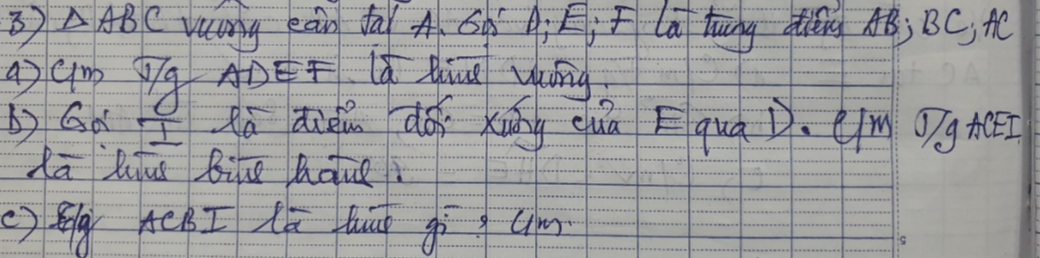 3) Δ ABC vuông cân tại A. Gọi D; E; F là trung điểm AB; BC; AC
a) C/m T/g ADEF là hình vuông.
b) Gọi I là điểm đối xứng của E qua D. C/m T/g ACEI
là hình bình hành.
c) T/g ACBI là hình gì? C/m.